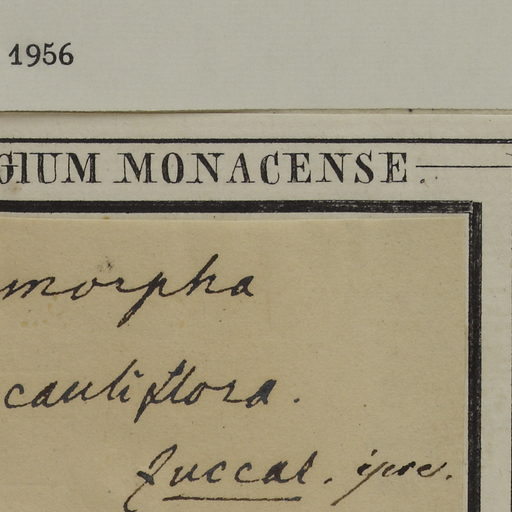 1956
GIUM MONACENSE
morpha
cauliflora.
Zuccal.